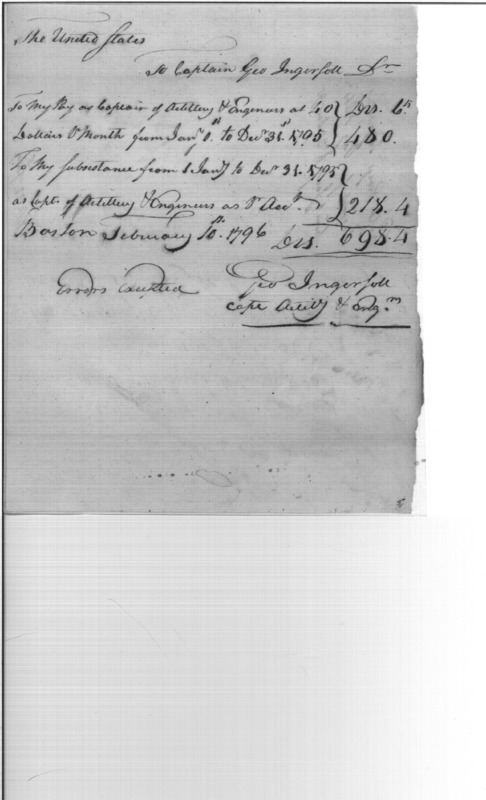 The United States
To Captain Geo Ingersoll Dr
To My Pay as Captain of Artillery & Engineers at 40 } Drs. Cts
Dollars Pr Month from Jany 1st to Decr 31st 1795 } 480.
To My Subsistance from 1 Jany to Decr 31. 1795 }
as Capt. of Artillery & Engineers as Pr Acct. } 218.4
Boston February 10th. 1796 Drs. 698.4
Errors Excepted Geo Ingersoll
Capt Artilly & Engrs